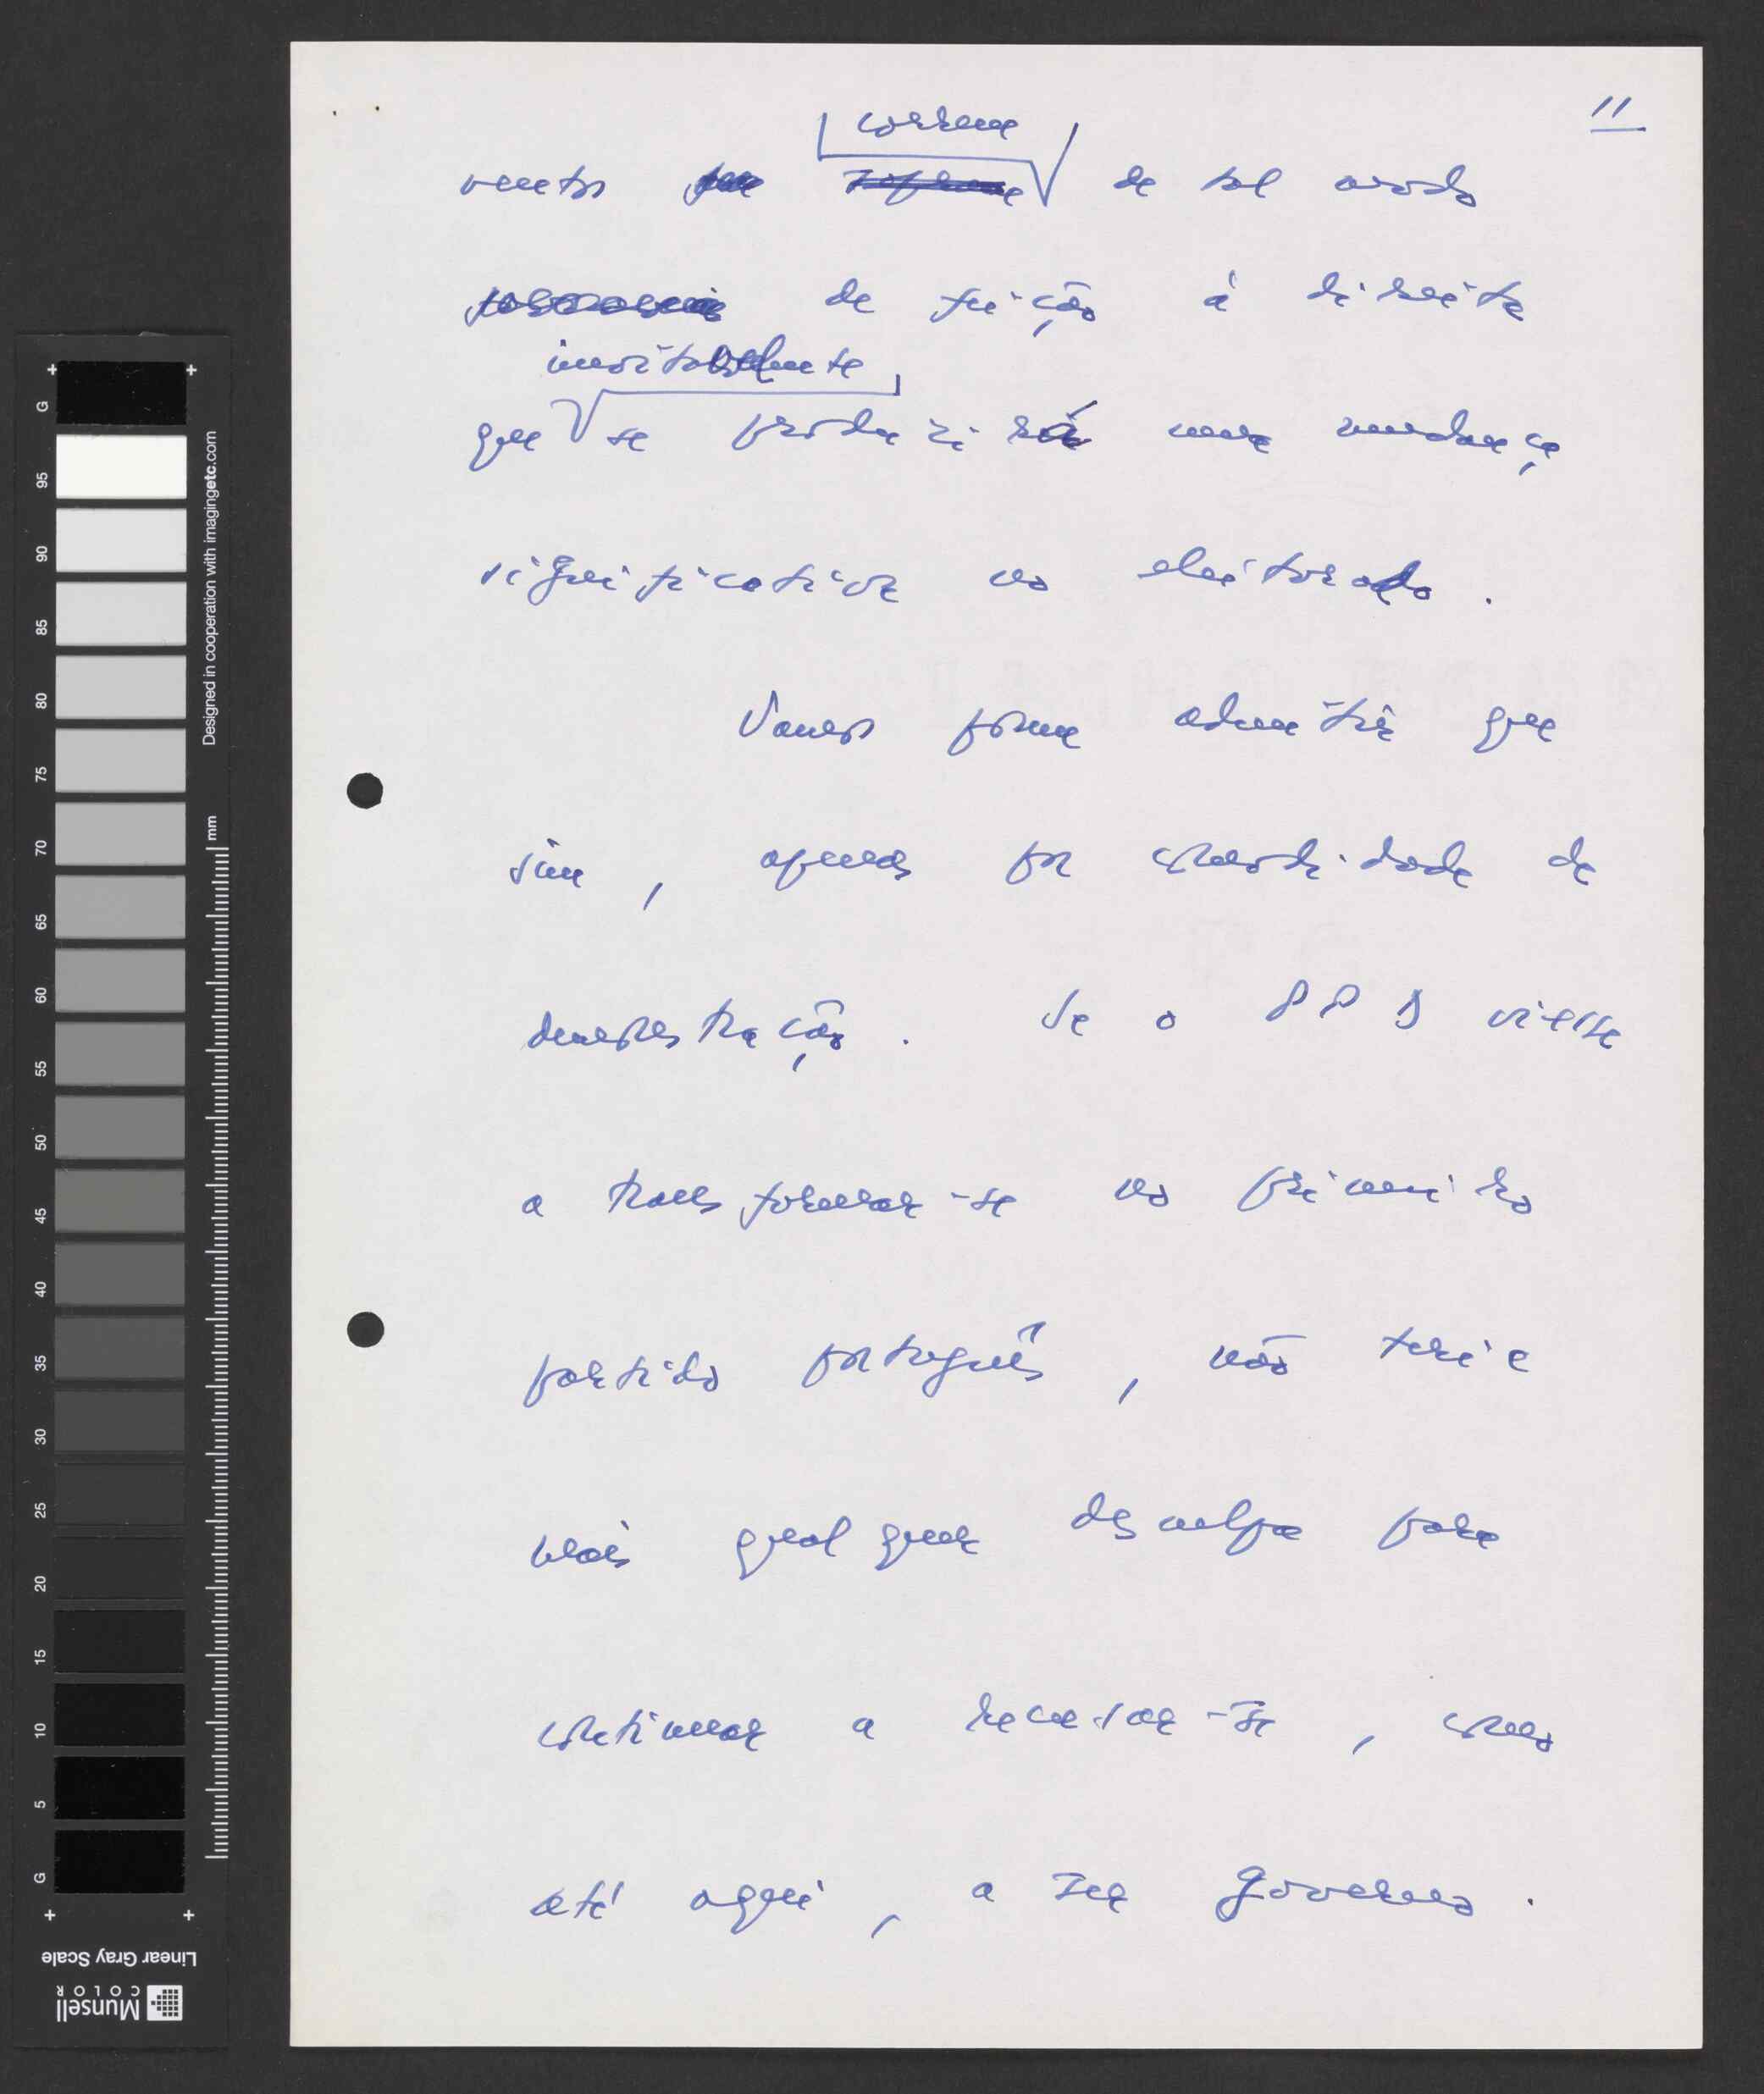 11
correm
ventos de tal modo
de feição à direita
inevitavelmente
que se produzirá uma mudança
significativa no eleitorado.
Vamos porém admitir que
sim, apenas por comodidade de
demonstração. Se o PPD viesse
a transformar-se no primeiro
partido português, não teria
mais qualquer desculpa para
continuar a recusar-se, como
até aqui, a ser Governo.
G
95
90
85
80
75
70
65
60
55
50
45
40
35
30
25
20
15
10
5
G
Designed in cooperation with imagingetc.com
mm
Linear Gray Scale
Munsell
COLOR